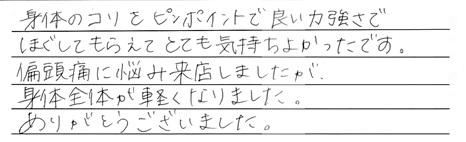 身体のコリをピンポイントで良い力強さで
ほぐしてもらえてとても気持ちよかったです。
偏頭痛に悩み来店しましたが、
身体全体が軽くなりました。
ありがとうございました。